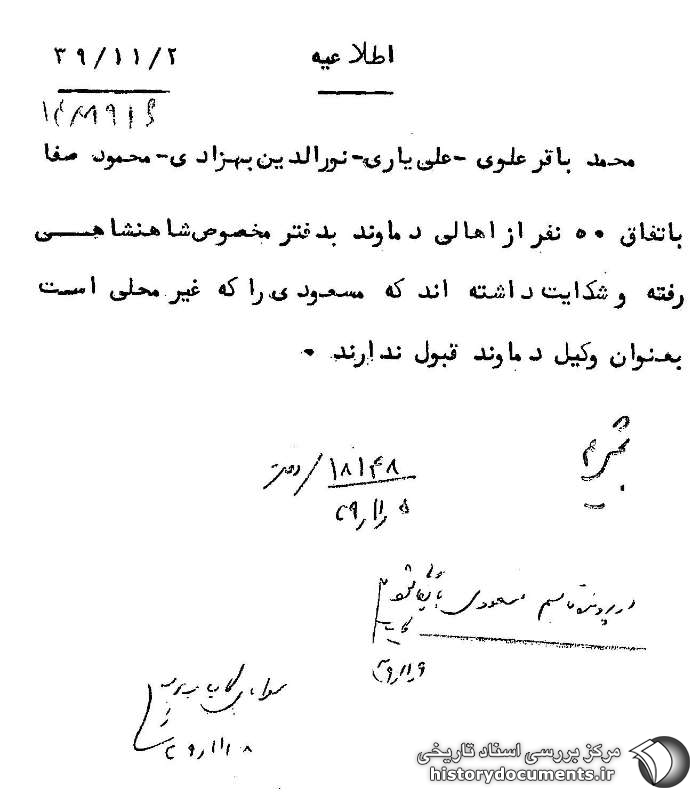 اطلاعیه
۳۹/۱۱/۲
محمد باقر علوی - علی یاری - نورالدین بهزادی - محمود صفا
باتفاق ۵۰ نفر از اهالی دماوند بدفتر مخصوص شاهنشاهی
رفته و شکایت داشته اند که مسعودی را که غیر محلی است
بعنوان وکیل دماوند قبول ندارند .
۱۸۱۴۸ / دفتر
در پرونده قاسم مسعودی بایگانی شود
مرکز بررسی اسناد تاریخی
historydocuments.ir